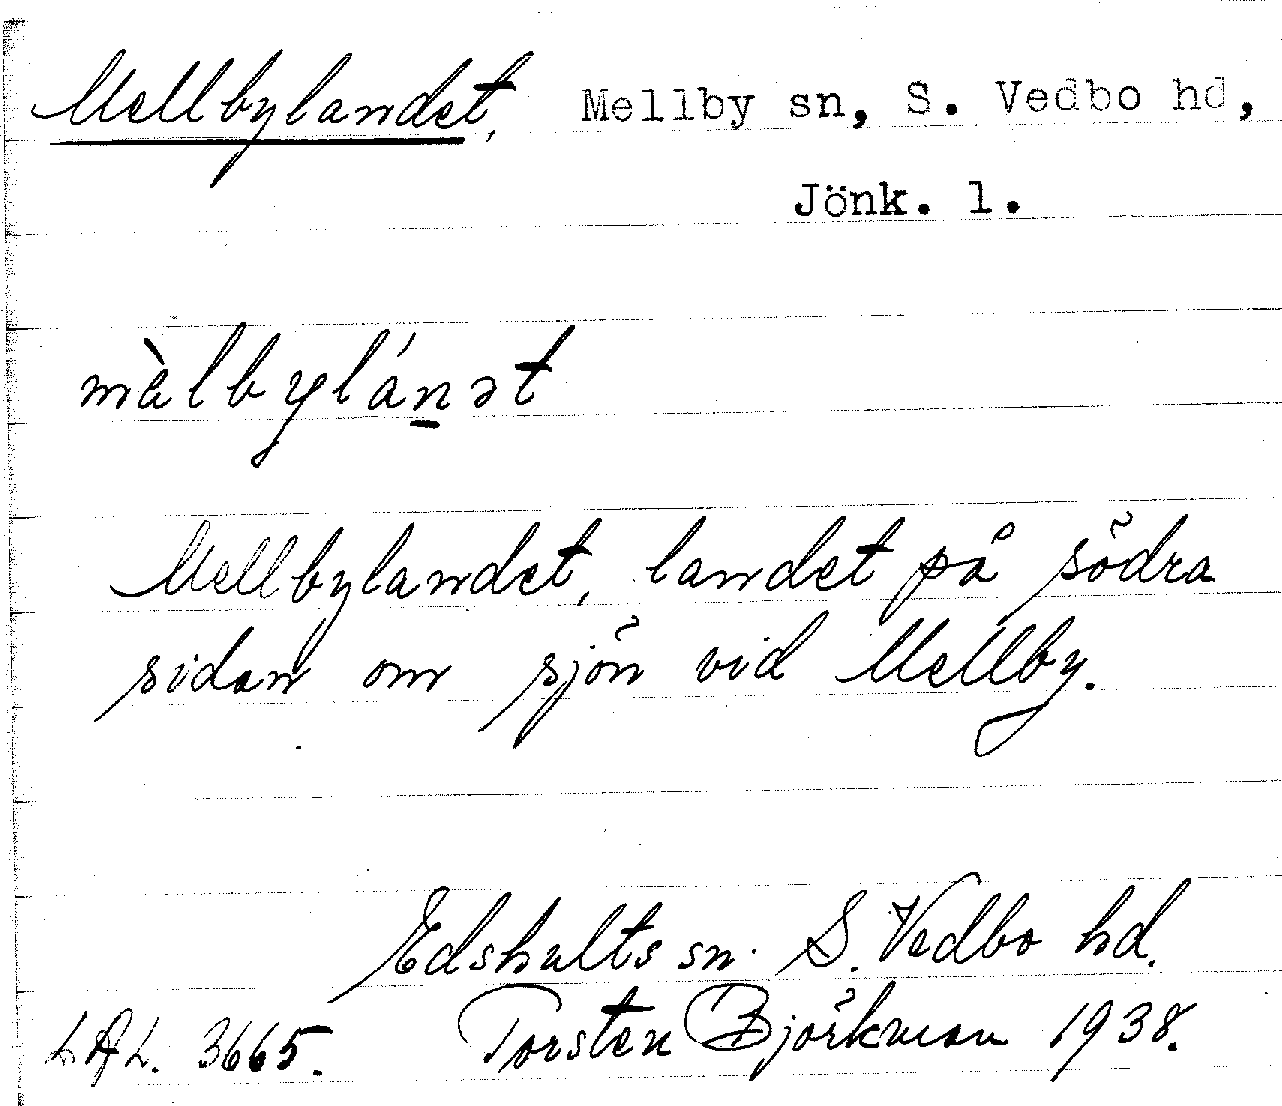 Mellbylandet, Mellby sn, S. Vedbo hd,
Jönk. l.
mèlbylánət
Mellbylandet, landet på södra
sidan om sjön vid Mellby.
Edshults sn. S. Vedbo hd.
LAL. 3665. Torsten Björkman 1938.